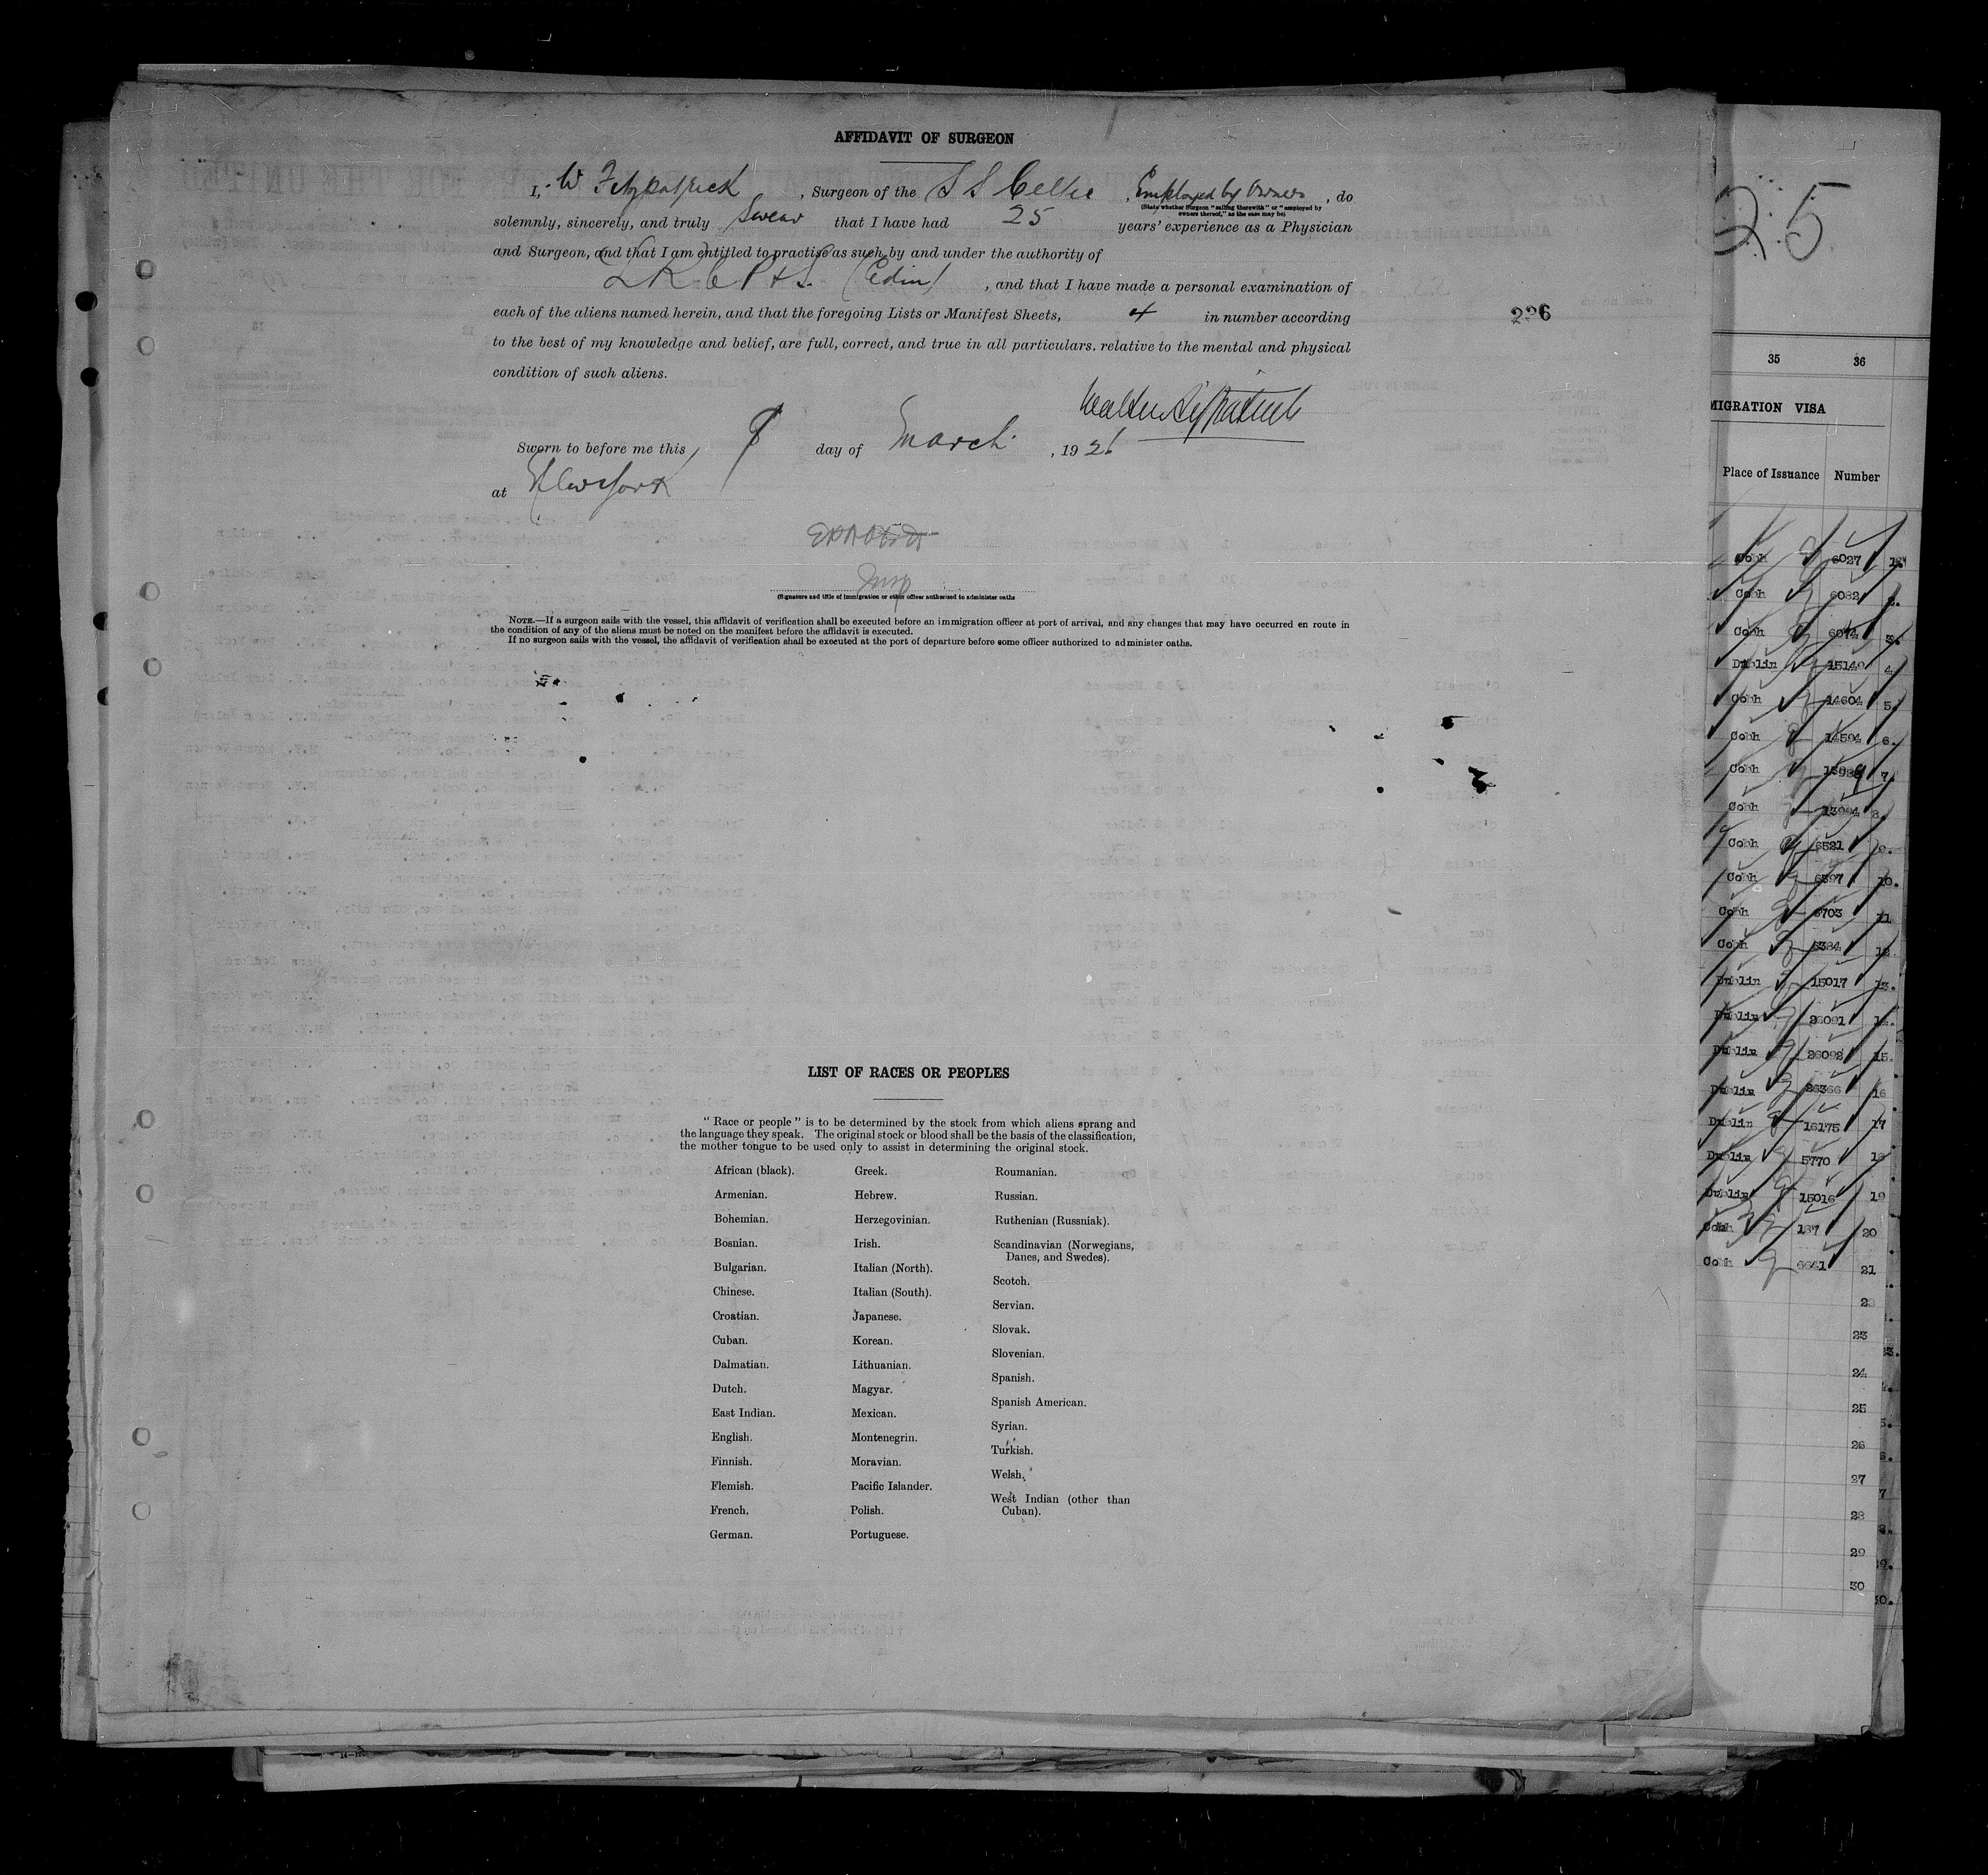 AFFIDAVIT OF SURGEON
I, W Fitzpatrick , Surgeon of the S S Celtic , Employed by Owners , do
(State whether Surgeon "sailing therewith" or "employed by
owners thereof," as the case may be)
solemnly, sincerely, and truly Swear that I have had 25 years' experience as a Physician
and Surgeon, and that I am entitled to practise as such by and under the authority of
L R C P & S. (Edin) , and that I have made a personal examination of
each of the aliens named herein, and that the foregoing Lists or Manifest Sheets, 4 in number according
to the best of my knowledge and belief, are full, correct, and true in all particulars. relative to the mental and physical
condition of such aliens.
226
Walter Fitzpatrick
Sworn to before me this 8 day of March , 1926
at New York
Insp
(Signature and title of immigration or other officer authorized to administer oaths
NOTE.—If a surgeon sails with the vessel, this affidavit of verification shall be executed before an immigration officer at port of arrival, and any changes that may have occurred en route in
the condition of any of the aliens must be noted on the manifest before the affidavit is executed.
If no surgeon sails with the vessel, the affidavit of verification shall be executed at the port of departure before some officer authorized to administer oaths.
LIST OF RACES OR PEOPLES
"Race or people" is to be determined by the stock from which aliens sprang and
the language they speak. The original stock or blood shall be the basis of the classification,
the mother tongue to be used only to assist in determining the original stock.
African (black).
Armenian.
Bohemian.
Bosnian.
Bulgarian.
Chinese.
Croatian.
Cuban.
Dalmatian.
Dutch.
East Indian.
English.
Finnish.
Flemish.
French.
German.
Greek.
Hebrew.
Herzegovinian.
Irish.
Italian (North).
Italian (South).
Japanese.
Korean.
Lithuanian.
Magyar.
Mexican.
Montenegrin.
Moravian.
Pacific Islander.
Polish.
Portuguese.
Roumanian.
Russian.
Ruthenian (Russniak).
Scandinavian (Norwegians,
Danes, and Swedes).
Scotch.
Servian.
Slovak.
Slovenian.
Spanish.
Spanish American.
Syrian.
Turkish.
Welsh.
West Indian (other than
Cuban).
25
35 36
MIGRATION VISA
Place of Issuance Number
Cobh 6027
Cobh 6082 2.
Cobh 6074 3.
Dublin 15149 4
Cobh 14604 5.
Cobh 14594 6.
Cobh 7.
Cobh 13994 8.
Cobh 6521 9.
Cobh 6397 10.
Cobh 6703 11
Cobh 6384 12
Dublin 15017 13.
Dublin 26091 14.
Dublin 26092 15.
Dublin 26366 16
Dublin 16175 17
Dublin 5770 18
Dublin 15016 19
Cobh 187 20
Cobh 6641 21
23
24
25
26
27
28
29
30